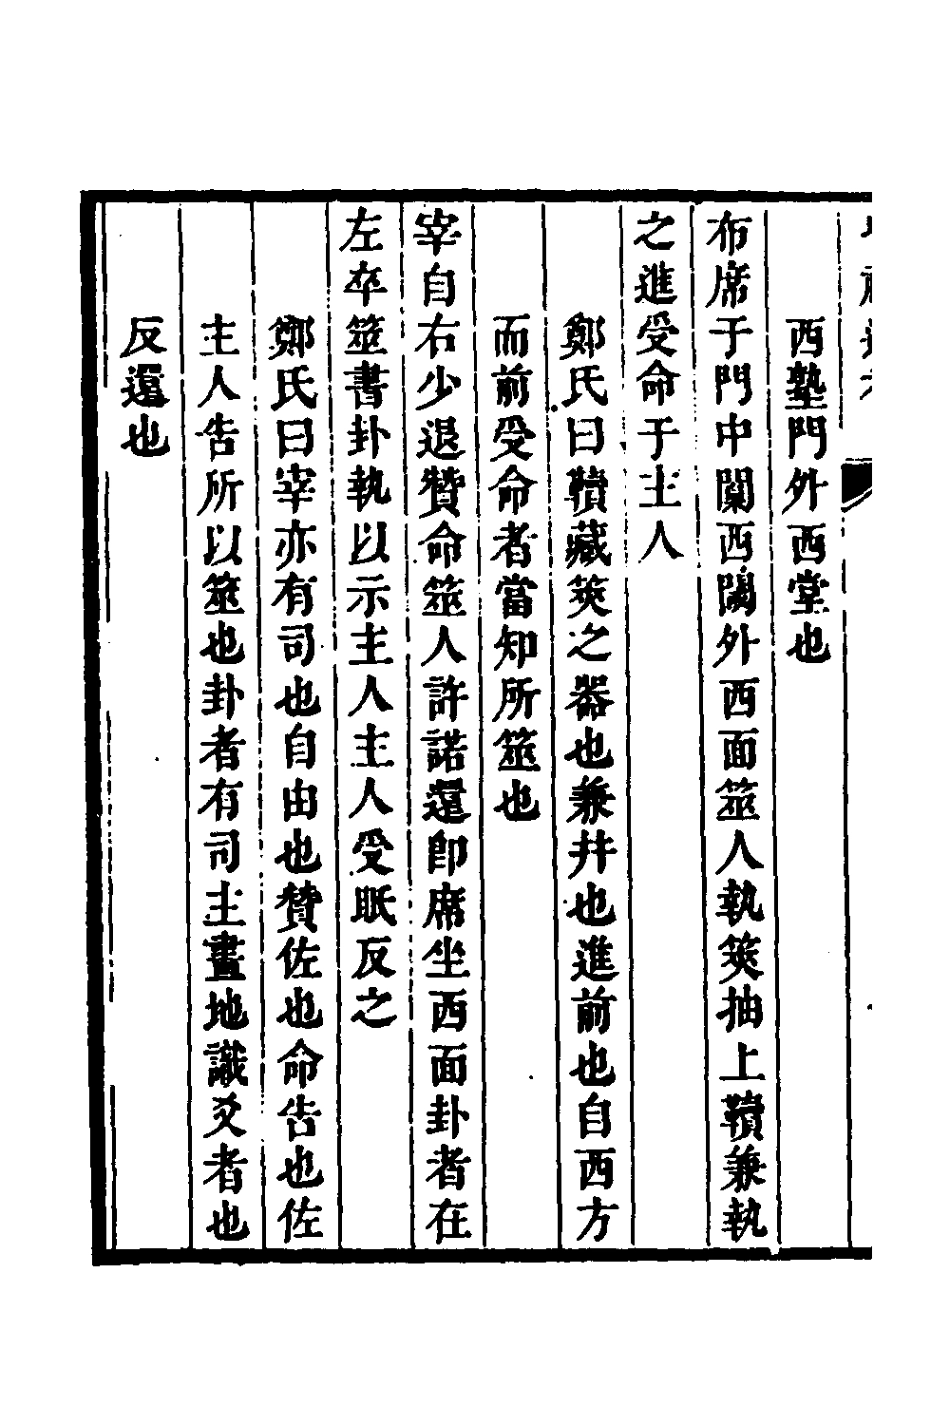 西塾門外西堂也
布席于門中闑西閾外西面筮人執筴抽上韇兼執
之進受命于主人
鄭氏曰韇藏筴之器也兼幷也進前也自西方
而前受命者當知所筮也
宰自右少退贊命筮人許諾還卽席坐西面卦者在
左卒筮書卦執以示主人主人受眂反之
鄭氏曰宰亦有司也自由也贊佐也命告也佐
主人告所以筮也卦者有司主畫地識爻者也
反還也